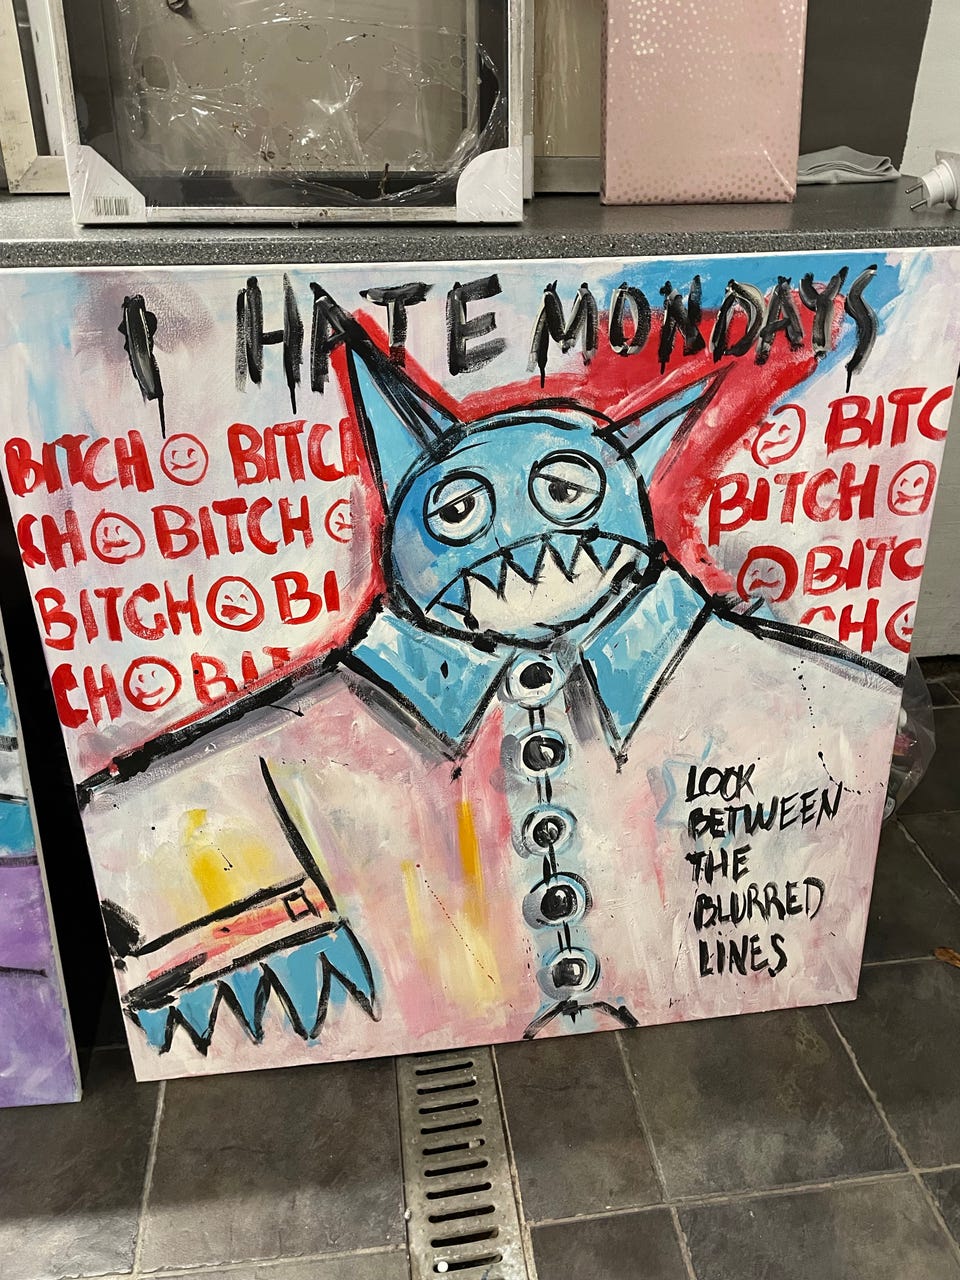 I HATE MONDAYS
BITCH BITCH
CH BITCH
BITCH BI
CH BIT
BITC
BITCH
BITC
CH
LOOK
BETWEEN
THE
BLURRED
LINES